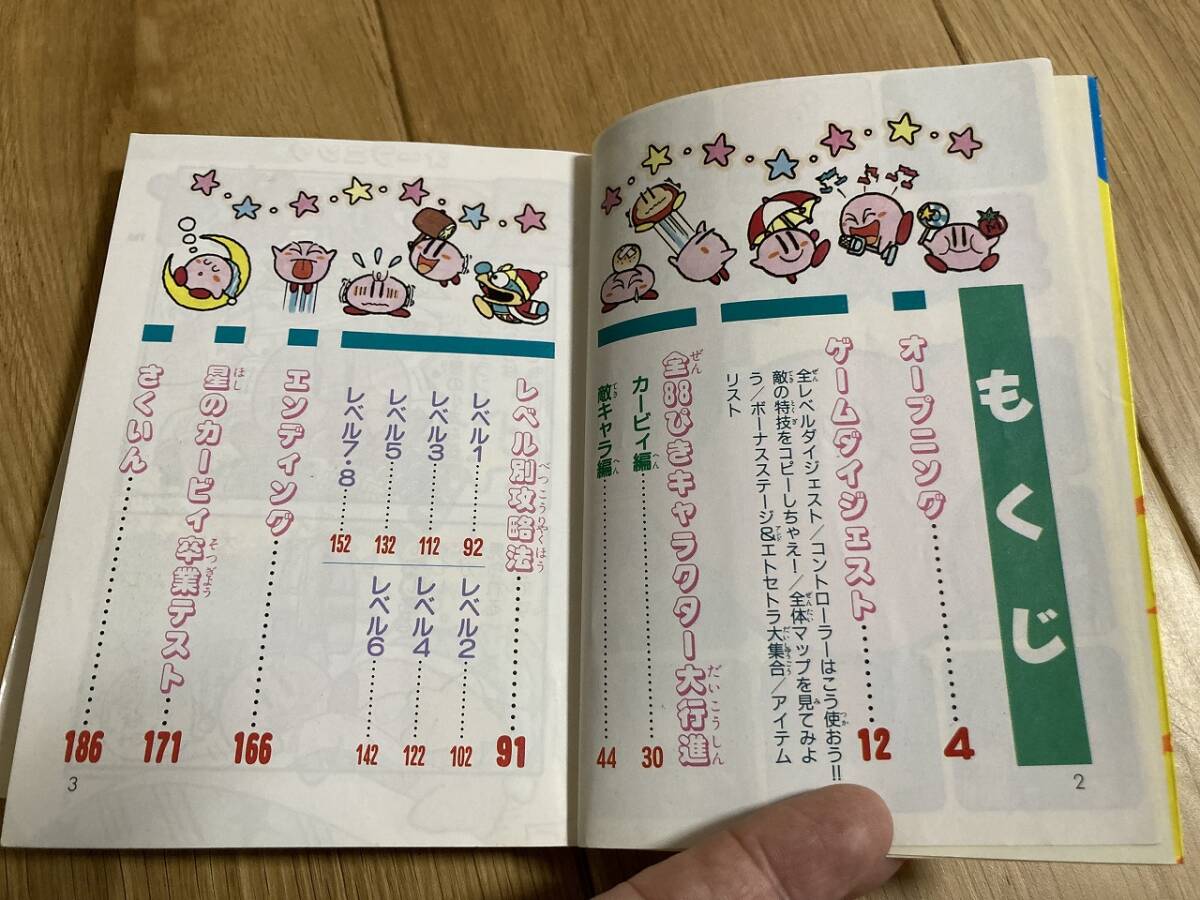 もくじ
オープニング……4
ゲームダイジェスト……12
全レベルダイジェスト/コントローラーはこう使おう!!
敵の特技をコピーしちゃえ!/全体マップを見てみよ
う/ボーナスステージ&エトセトラ大集合/アイテム
リスト
全88ぴきキャラクター大行進
カービィ編……30
敵キャラ編……44
2
レベル別攻略法……91
レベル1……92
レベル2……102
レベル3……112
レベル4……122
レベル5……132
レベル6……142
レベル7・8……152
エンディング……166
星のカービィ卒業テスト……171
さくいん……186
3